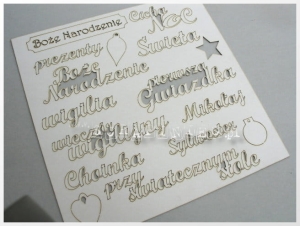 Boże Narodzenie
Cicha
Noc
prezenty
Święta
Boże
Narodzenie
Pierwsza
Gwiazdka
wigilia
Mikołaj
wieczór
Wigilijny
Sylwester
Choinka
przy
świątecznym
stole